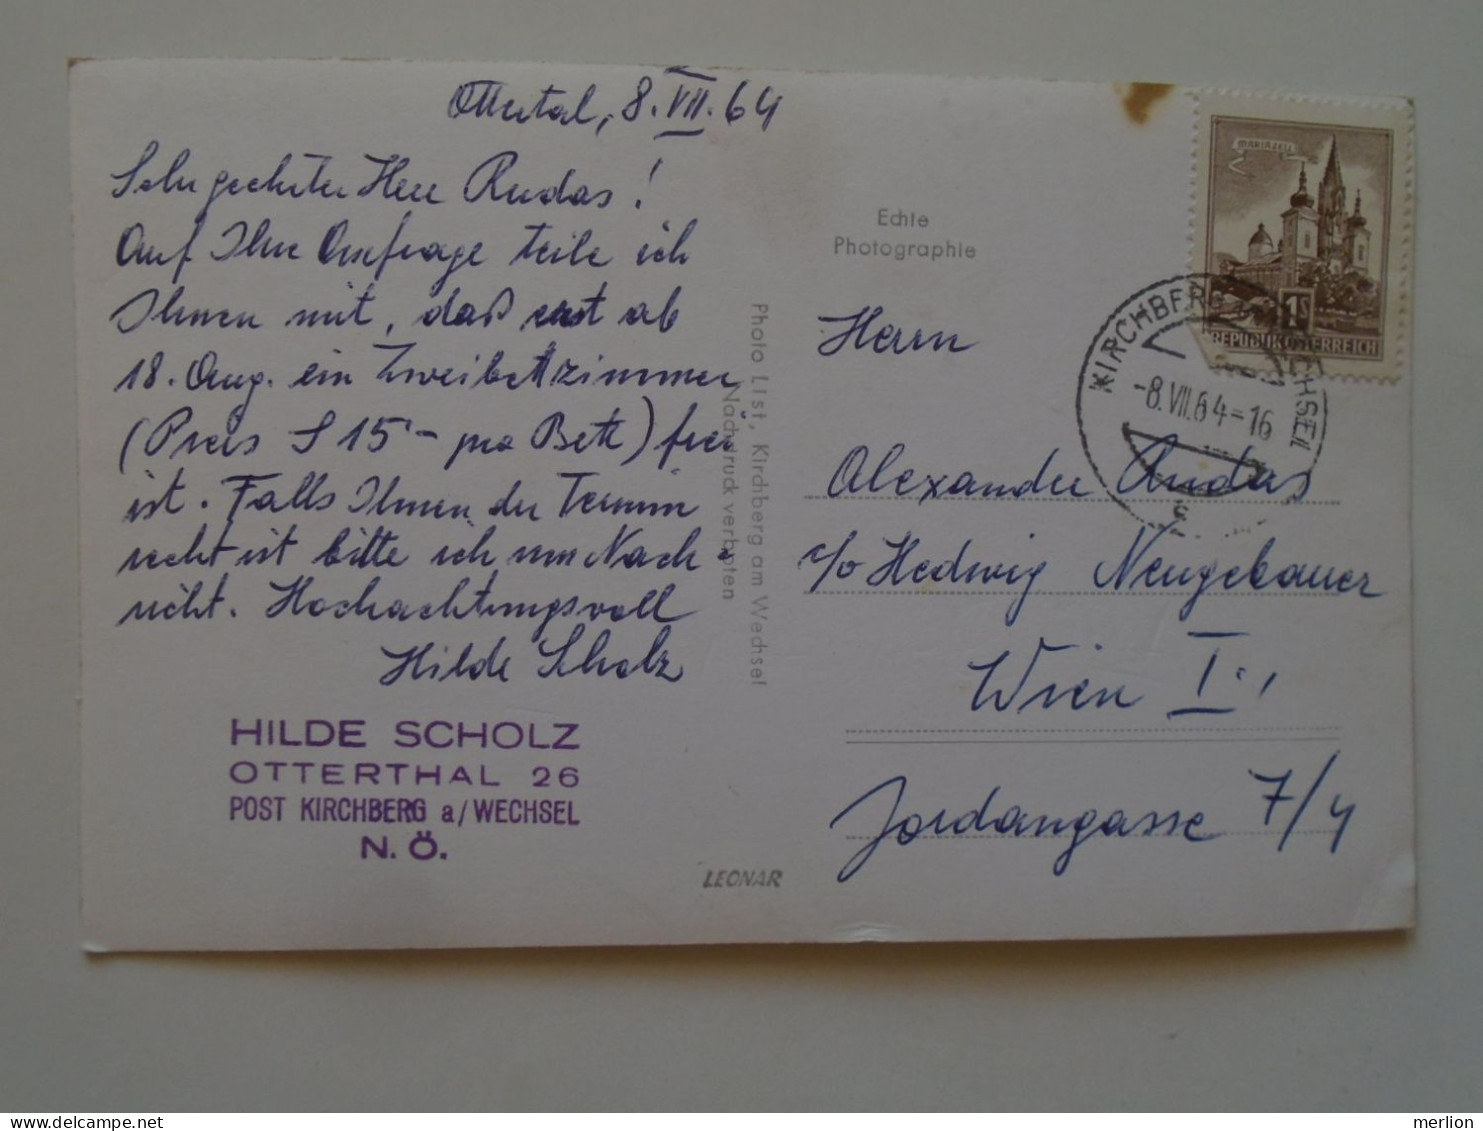 Ottertal, 8.VII.64
Sehr geehrter Herr Rudas!
Auf Ihre Anfrage teile ich
Ihnen mit, daß erst ab
18. Aug. ein Zweibettzimmer
(Preis S 15- pro Bett) frei
ist. Falls Ihnen der Termin
recht ist bitte ich um Nach-
richt. Hochachtungsvoll
Hilde Scholz
HILDE SCHOLZ
OTTERTHAL 26
POST KIRCHBERG a/WECHSEL
N.Ö.
Photo List, Kirchberg am Wechsel
Nachdruck verboten
LEONAR
Echte
Photographie
MARIAZELL
1S
REPUBLIK ÖSTERREICH
KIRCHBERG WECHSEL
-8.VII.64-16
c
Herrn
Alexander Rudas
c/o Hedwig Neugebauer
Wien I.,
Jordangasse 7/4
merlion